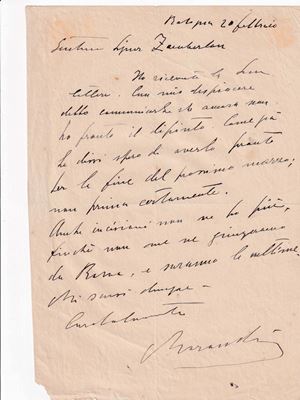 Bologna 20 febbraio
Signor Zamberlan
Ho ricevuto la Sua
lettera. Con mio dispiacere
debbo comunicarle che ancora non
ho pronto il dipinto. Come già
le dissi spero di averlo pronto
per la fine del prossimo marzo,
non prima certamente.
Anche incisioni non ne ho più,
finché non me ne giungeranno
da Roma, e saranno le ultime.
Mi scusi dunque
Cordialmente
Morandi